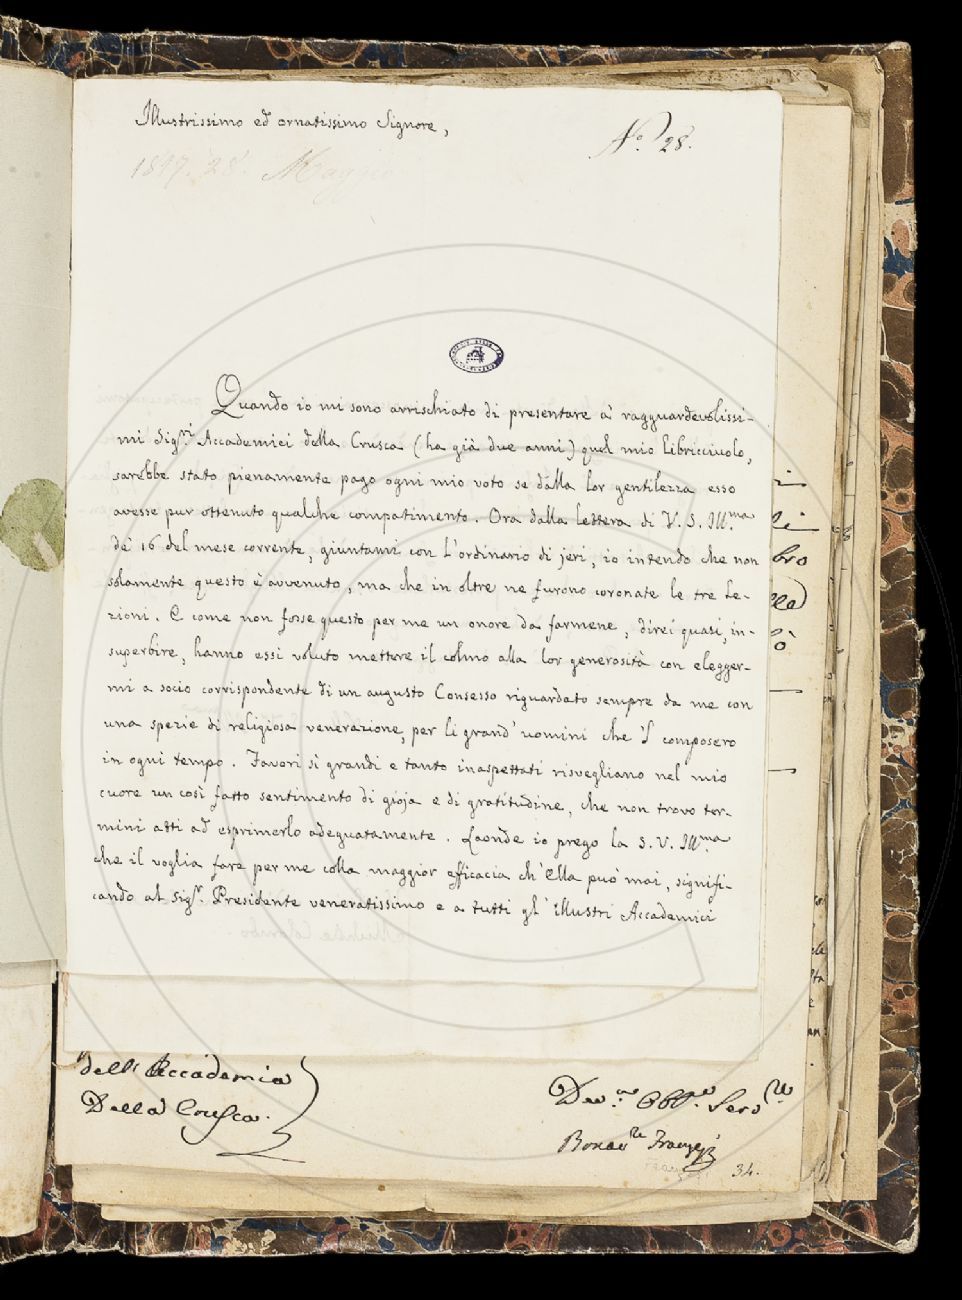 Illustrissimo ed ornatissimo Signore,
N.° 28.
28. Maggio
Quando io mi sono arrischiato di presentare a' ragguardevolissi-
mi Sig.ri Accademici della Crusca (ha già due anni) quel mio libricciuolo,
sarebbe stato pienamente pago ogni mio voto se dalla lor gentilezza esso
avesse pur ottenuto qualche compatimento. Ora dalla lettera di V. S. Ill.ma
de' 16 del mese corrente, giuntami con l'ordinario di jeri, io intendo che non
solamente questo è avvenuto, ma che in oltre ne furono coronate le tre Le-
zioni. E come non fosse questo per me un onore da farmene, direi quasi, in-
superbire, hanno essi voluto mettere il colmo alla lor generosità con elegger-
mi a socio corrispondente di un augusto Consesso riguardato sempre da me con
una spezie di religiosa venerazione, per li grand' uomini che 'l composero
in ogni tempo. Favori sì grandi e tanto inaspettati risvegliano nel mio
cuore un così fatto sentimento di gioja e di gratitudine, che non trovo ter-
mini atti ad esprimerlo adeguatamente. Laonde io prego la S. V. Ill.ma
che il voglia fare per me colla maggior efficacia ch' Ella può mai, signifi-
cando al Sig.r Presidente veneratissimo e a tutti gl' illustri Accademici
dell' Accademia
Della Crusca.
Dev.mo Obb.o Serv.re
34.